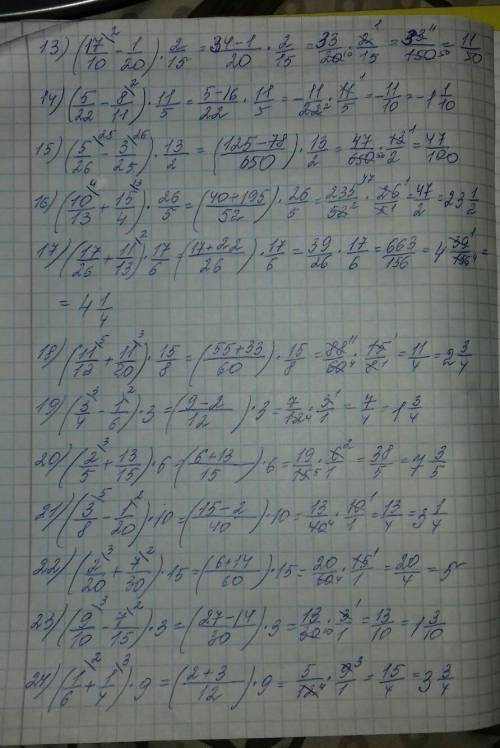 13) (17/10 - 1/20) · 2/15 = 34-1/20 · 2/15 = 33/20 · 2/15 = 33/150 = 11/50
14) (5/22 - 8/11) · 11/5 = 5-16/22 · 11/5 = -11/22 · 11/5 = -11/10 = -1 1/10
15) (5/26 - 3/25) · 13/2 = (125-78/650) · 13/2 = 47/650 · 13/2 = 47/100
16) (10/13 + 15/4) · 26/5 = (40+195/52) · 26/5 = 235/52 · 26/5 = 47/2 = 23 1/2
17) (17/26 + 11/13) · 17/6 = (17+22/26) · 17/6 = 39/26 · 17/6 = 663/156 = 4 39/156 =
= 4 1/4
18) (11/12 + 11/20) · 15/8 = (55+33/60) · 15/8 = 88/60 · 15/8 = 11/4 = 2 3/4
19) (3/4 - 1/6) · 3 = (9-2/12) · 3 = 7/12 · 3/1 = 7/4 = 1 3/4
20) (2/5 + 13/15) · 6 = (6+13/15) · 6 = 19/15 · 6/1 = 38/5 = 7 3/5
21) (3/8 - 1/20) · 10 = (15-2/40) · 10 = 13/40 · 10/1 = 13/4 = 3 1/4
22) (2/20 + 7/30) · 15 = (6+14/60) · 15 = 20/60 · 15/1 = 20/4 = 5
23) (9/10 - 7/15) · 3 = (27-14/30) · 3 = 13/30 · 3/1 = 13/10 = 1 3/10
24) (1/6 + 1/4) · 9 = (2+3/12) · 9 = 5/12 · 9/1 = 15/4 = 3 3/4